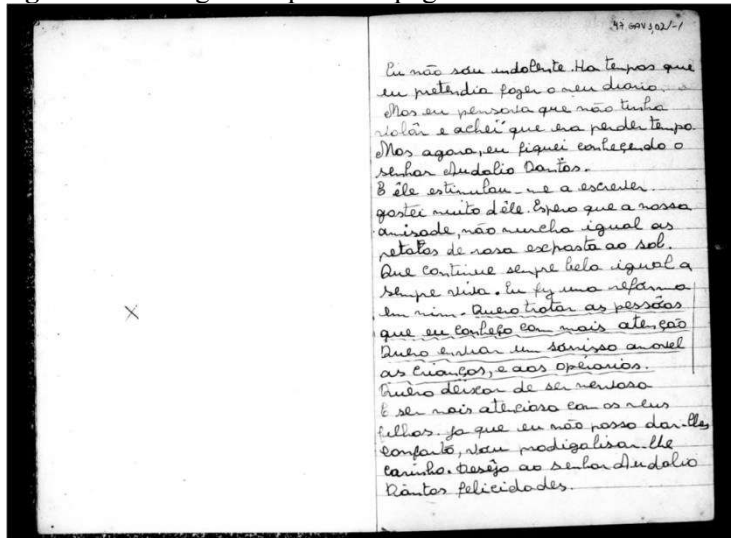 47,GAV3,02/-1
Eu não sou indolente. Ha tempos que
eu pretendia fazer o meu diario.
Mas eu pensava que não tinha
valôr e achei que era perder tempo
Mas agora, eu fiquei conheçendo o
senhor Audalio Dantas.
E êle estimulou-me a escrever.
gostei muito dêle. Espero que a nossa
amisade, não murcha igual as
petalas de rosa exposta ao sol.
Que continue sempre bela igual a
sempre viva. Eu fiz uma refórma
em mim. Quero tratar as pessôas
que eu conheço com mais atenção
Quero enviar um sorriso amavel
as crianças, e aos operarios.
Quero deixar de ser nervosa
E ser mais atenciosa com os meus
filhos. Ja que eu não posso dar-lhes
conforto, vou prodigalisar-lhe
carinho. Desêjo ao senhor Audalio
Dantas felicidades.